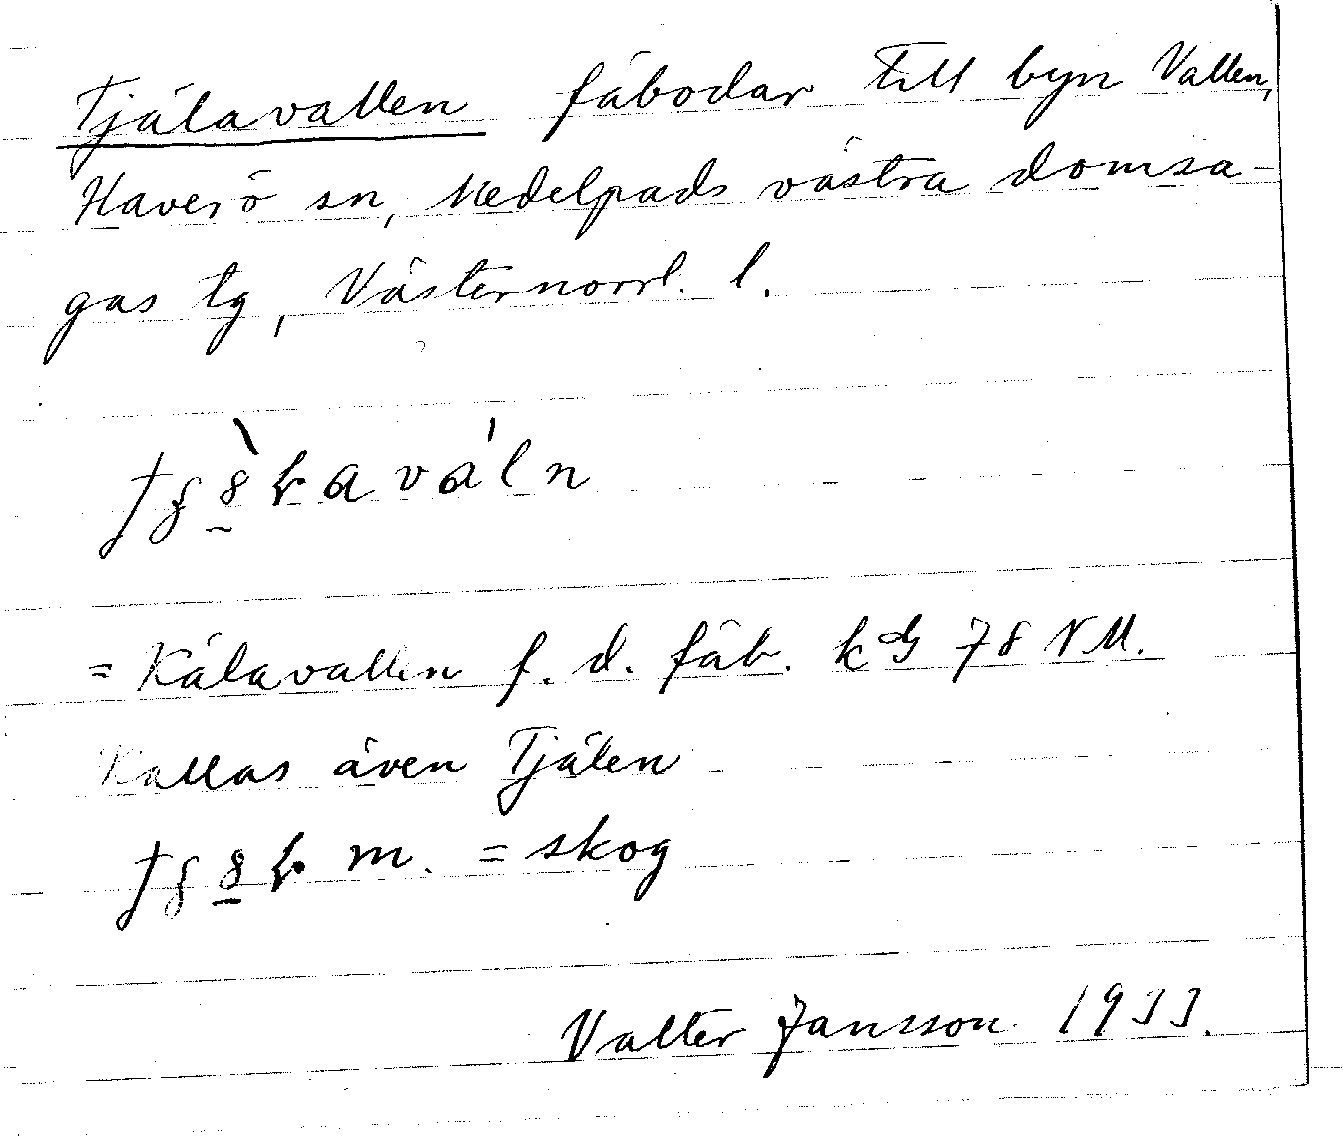 Tjälavallen fäbodar till byn Vallen,
Haverö sn, Medelpads västra domsa-
gas tg, Västernorrl. l.
= Kälavallen f. d. fäb. k 78 NV.
Kallas även Tjälen
m. = skog
Valter Jansson 1933.